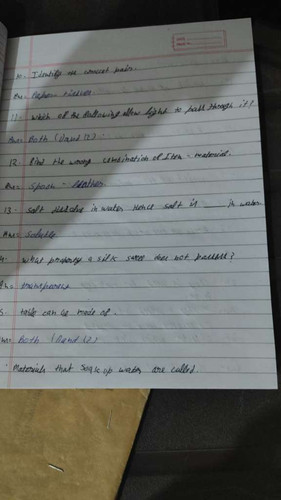 10. Identify the correct pair.
Ans- Paper - tissue
11. Which of the following allow light to pass through it?
Ans- Both (1) and (2).
12. Find the wrong combination of Item - material.
Ans- Spoon -
13. Salt dissolve in water. Hence salt is ____ in water.
Ans- Soluble
What property a silk saree does not possess?
Ans- transparent
table can be made of -
Ans- Both (1) and (2)
Materials that soak up water are called.